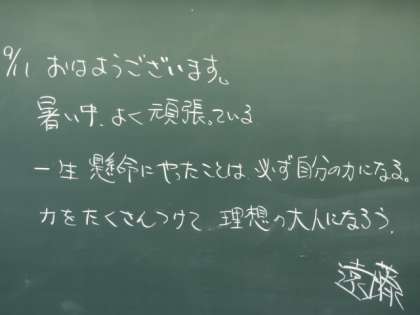 9/11 おはようございます。
暑い中、よく頑張っている
一生懸命にやったことは、必ず自分の力になる。
力をたくさんつけて、理想の大人になろう。
遠藤